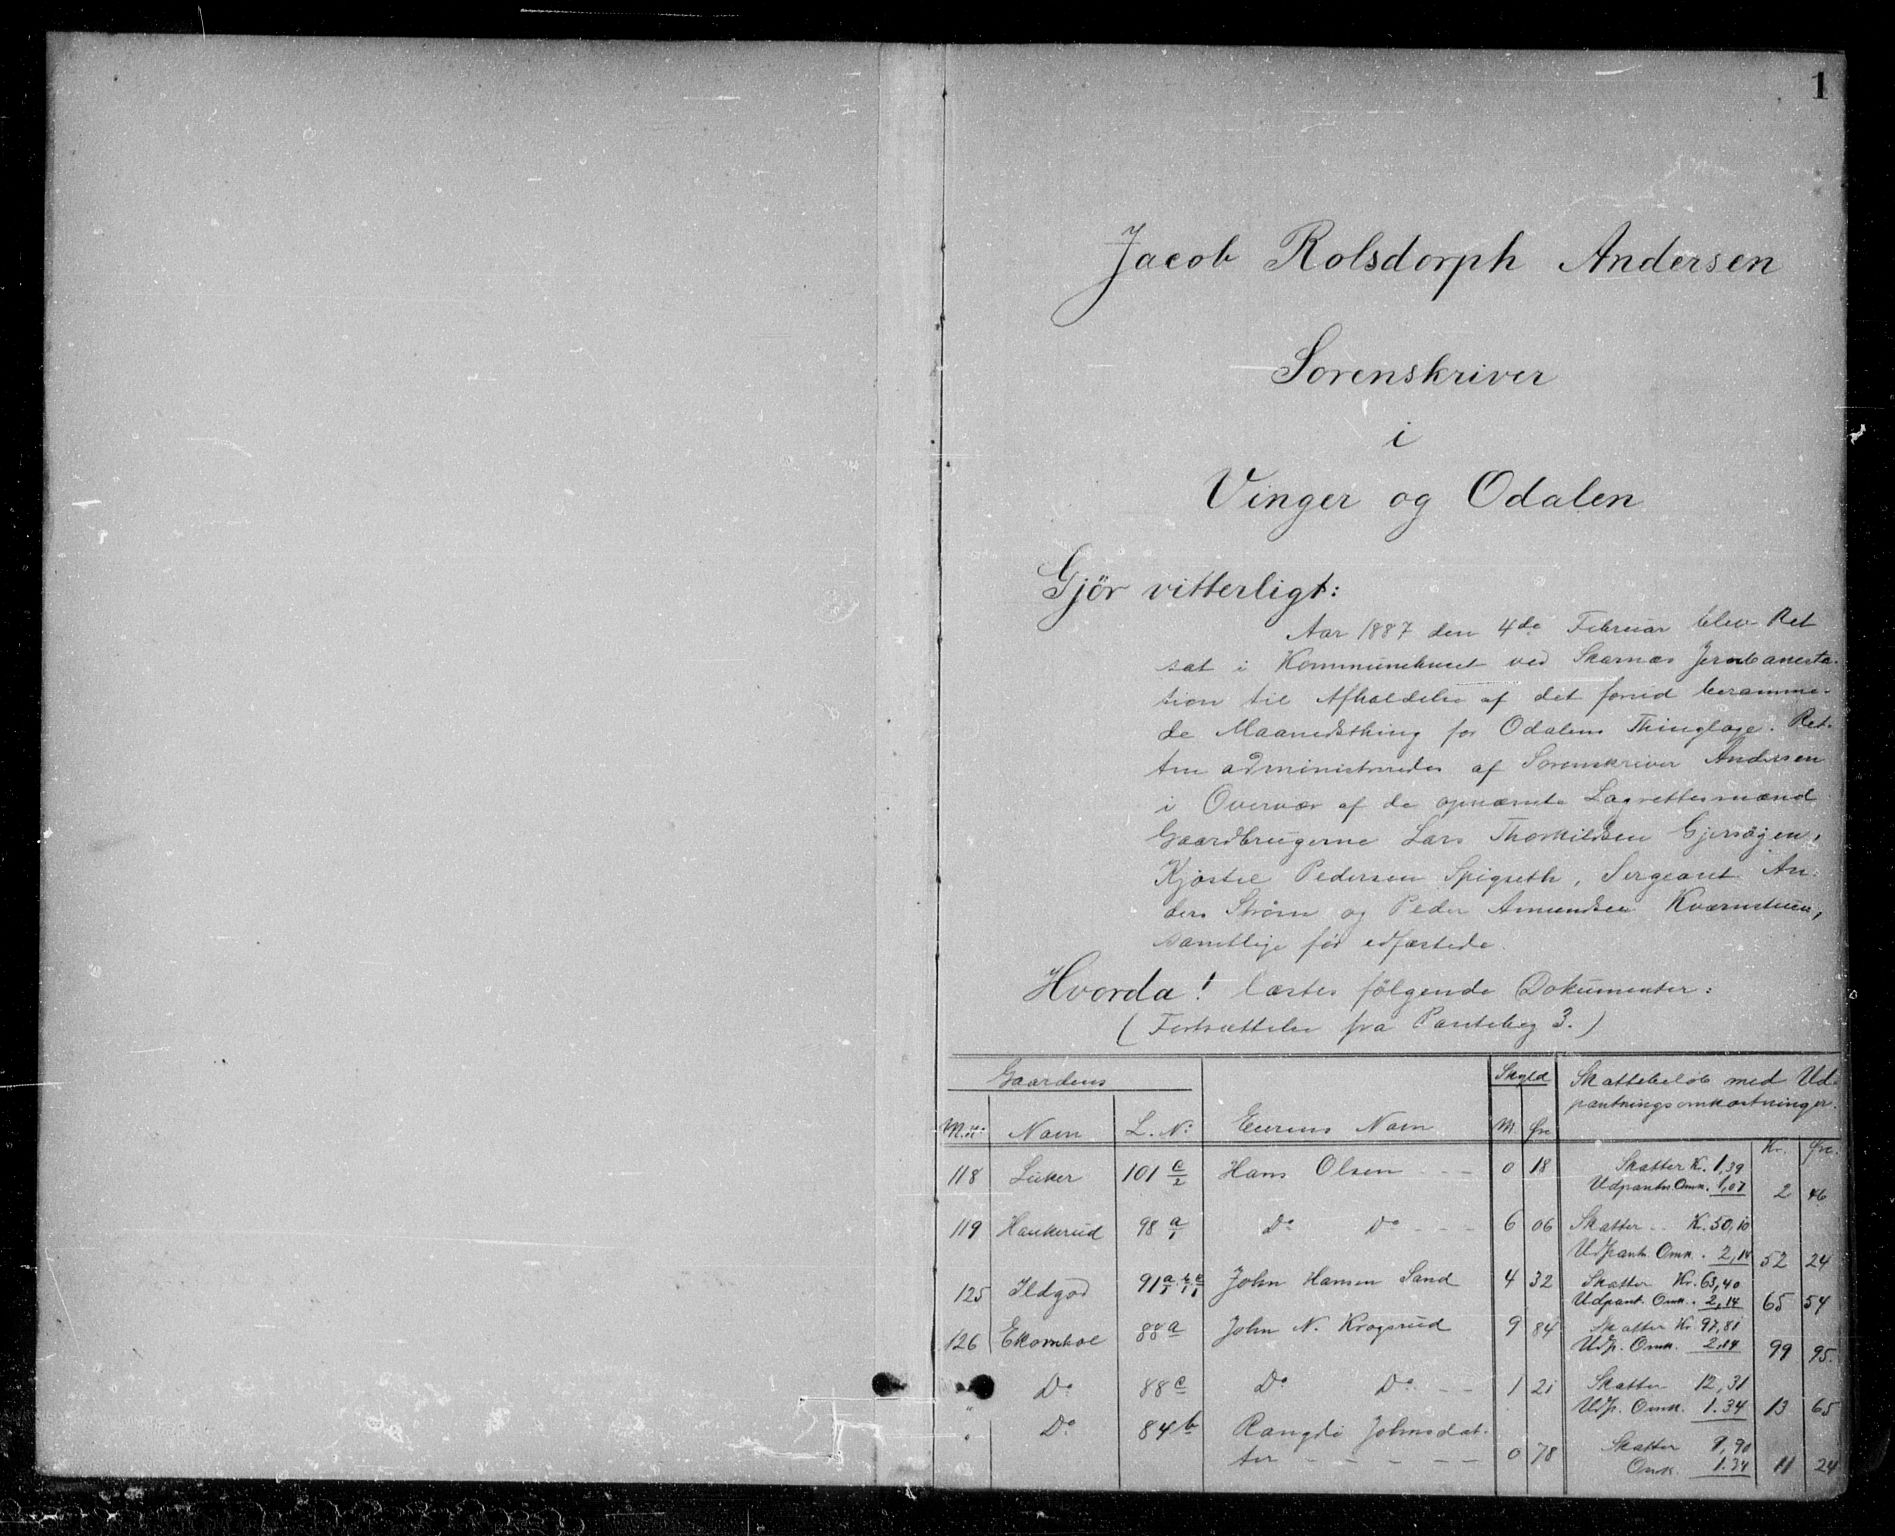 1
Jacob Rolsdorph Andersen
Sorenskriver
i
Vinger og Odalen
Gjör vitterligt:
Aar 1887 den 4de Februar blev Ret
sat i Kommunehuset ved Skarnæs Jernbanesta-
tion til Afholdelse af det forud beramme-
de Maanedsthing for Odalens Thinglage. Ret-
ten administreredes af Sorenskriver Andersen
i Overvær af de opnævnte Lagrettesmænd
Gaardbrugerne Lars Thorkildsen Gjersøyen,
Kjøstel Pedersen Spigseth, Sergeant An-
ders Strøm og Peder Amundsen Kværnstuen,
samtlige før edfæstede.
Hvorda! læstes følgende Dokumenter:
(Fortsættelse fra Pantebog 3.)
Gaardens Skyld Skattebeløb med Ud-
pantningsomkostninger.
M. No Navn L. No Eierens Navn M. Øre Kr. Øre.
118 Liker 101 c/2 Hans Olsen - - 0 18 Skatter Kr. 1,39
Udpantn Omk. 1,07 2 46
119 Haukerud 98 a/1 Do Do - - - 6 06 Skatter - - Kr. 50,10
Udpant. Omk. 2,14 52 24
125 Ildgod 91 John Hansen Sand 4 32 Skatter Kr. 63,40
Udpant. Omk. 2,14 65 54
126 Ekornhol 88 a John N. Krogsrud 9 84 Skatter Kr 97,81
Udp. Omk. 2,14 99 95.
" Do 88 c Do Do - - 1 21 Skatter 12,31
Udp. Omk. 1.34 13 65
" Do 84 b Rangdi Johnsdat-
ter - - - - - 0 78 Skatter 9,90
Omk. 1.34 11 24